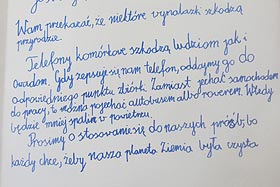 Wam przekazać, że niektóre wynalazki szkodzą
przyrodzie.
Telefony komórkowe szkodzą ludziom jak i
owadom. Gdy zepsuje się nam telefon, oddajmy go do
odpowiedniego punktu zbiórk. Zamiast jechać samochodem
do pracy, to można pojechać autobusem albo rowerem. Wtedy
będzie mniej spalin w powietrzu.
Prosimy o stosowanie się do naszych próśb, bo
każdy chce, żeby nasza planeta Ziemia była czysta